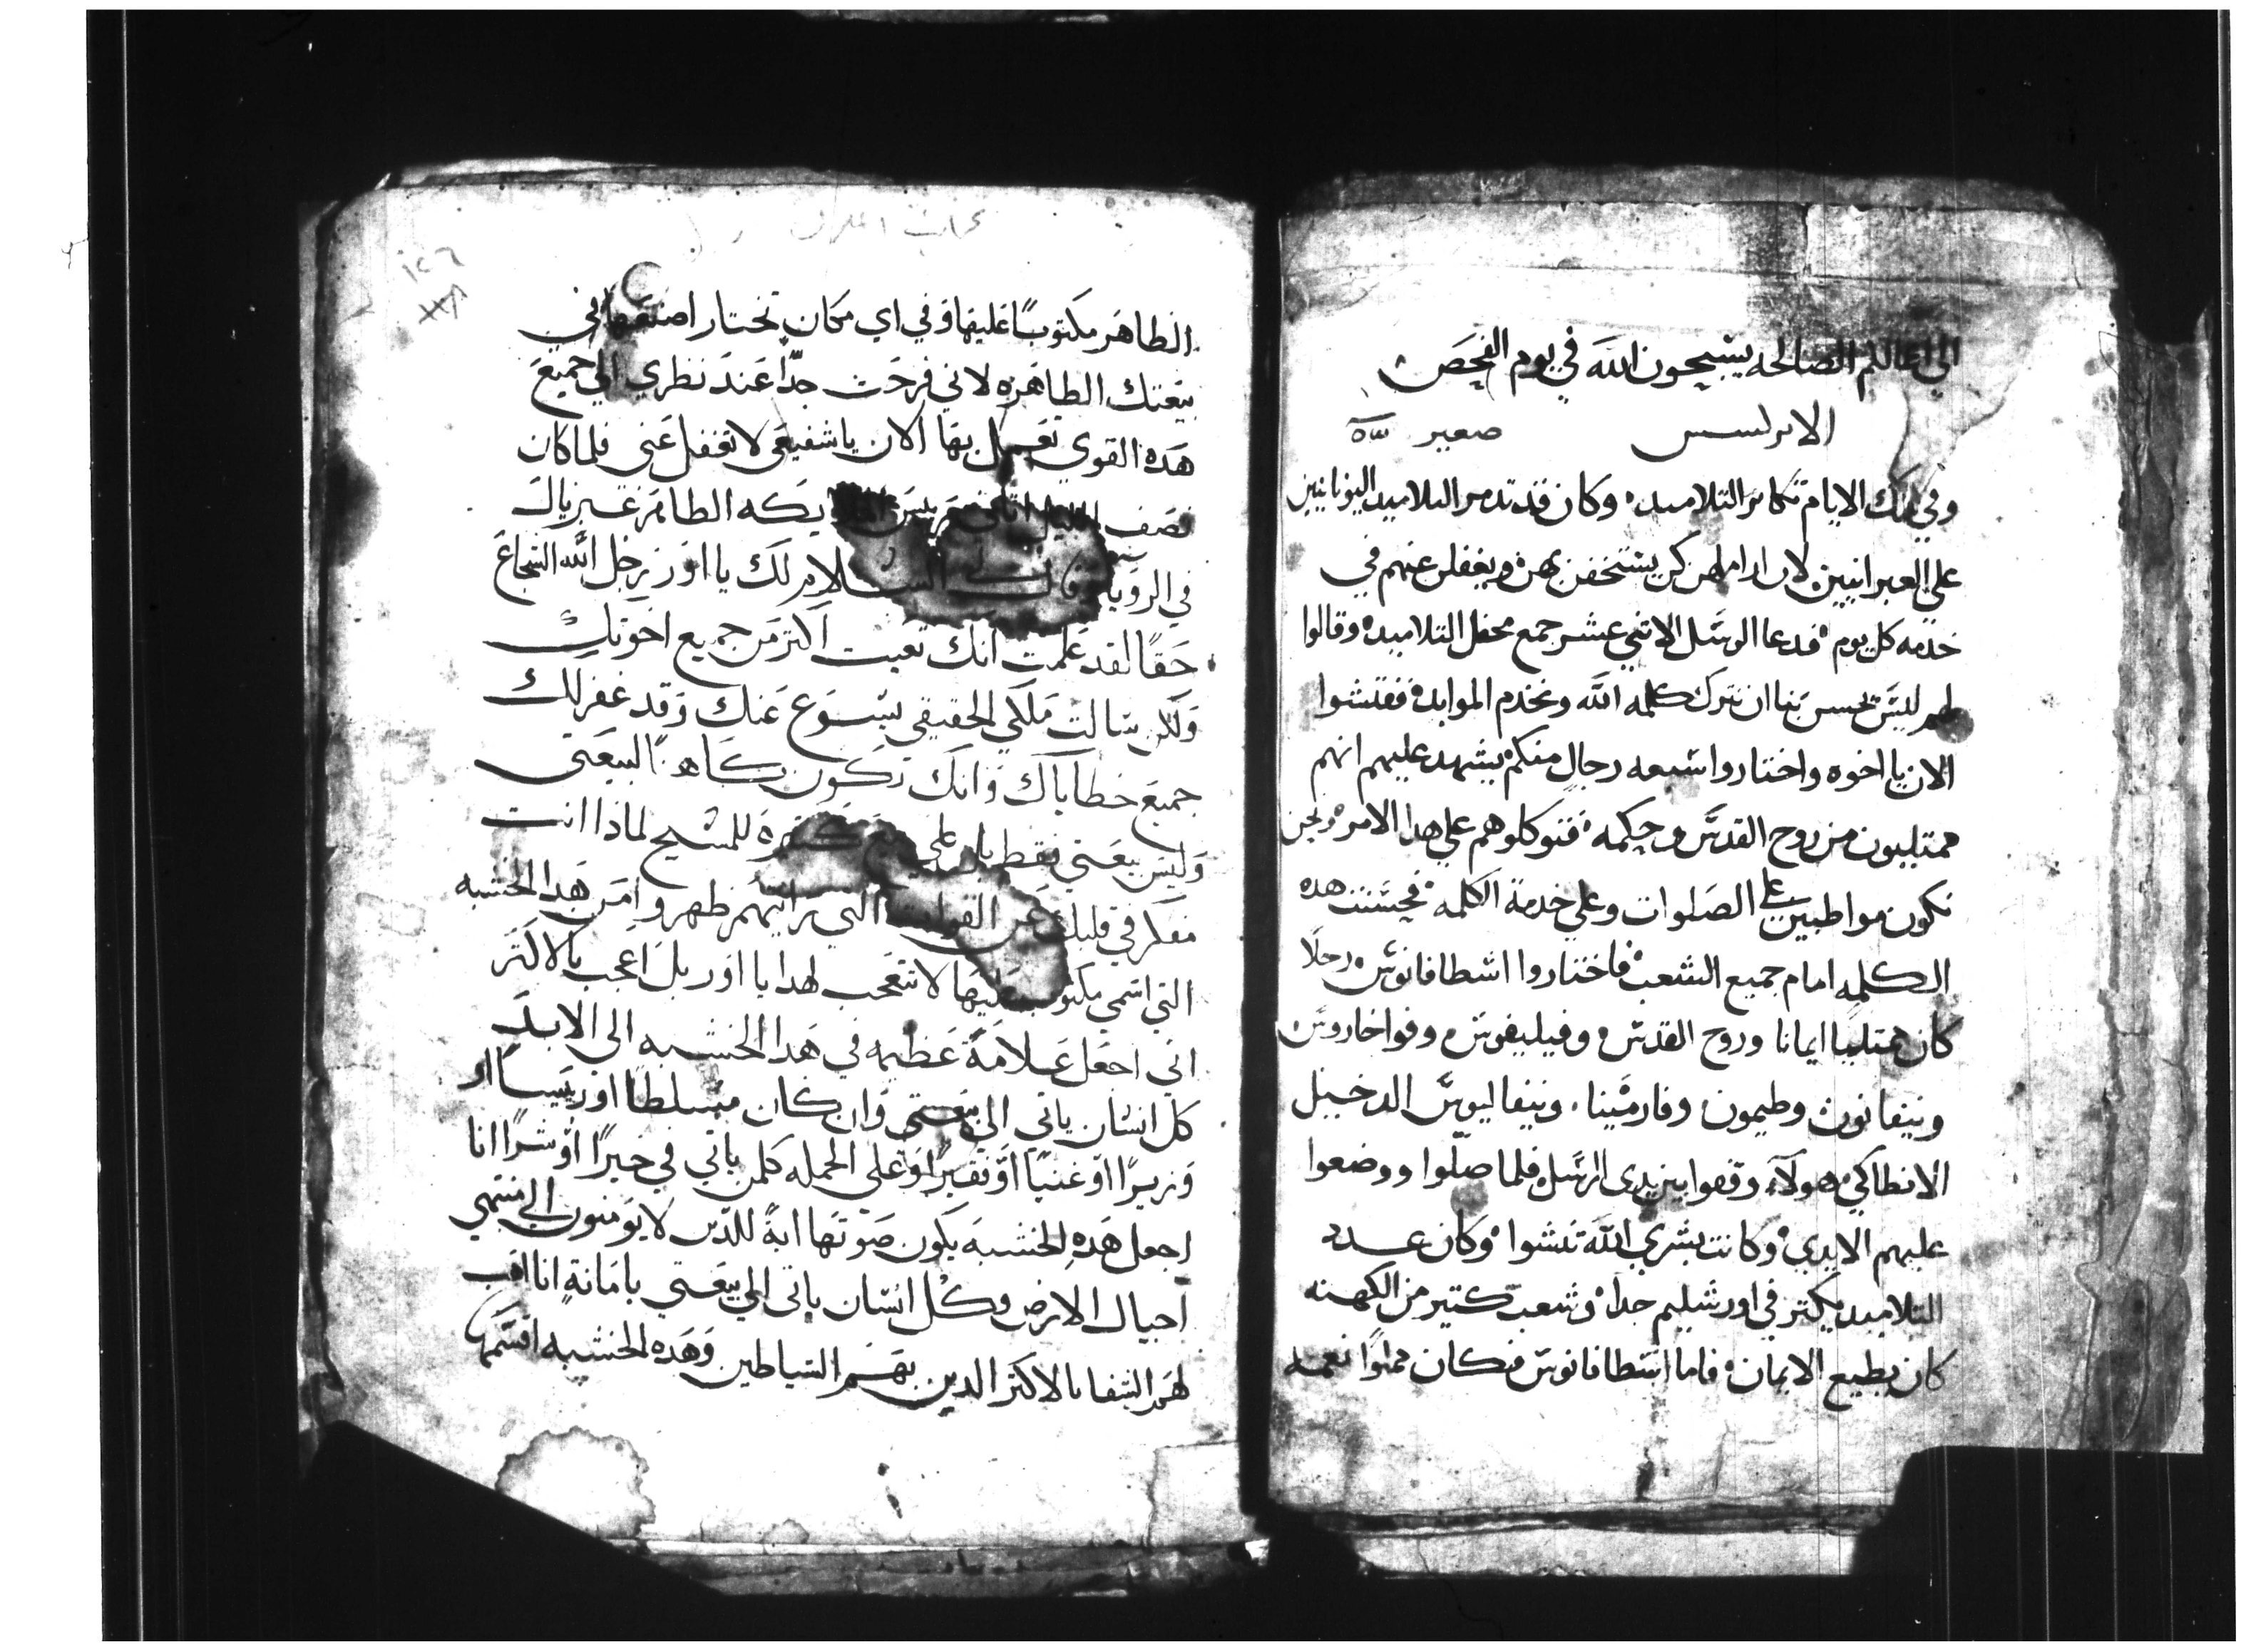 الي اعمالكم الصالحه يسبحون الله في يوم الفحص
الابركسس صعير
وفي تلك الايام تكاثر التلاميد وكان قد تدمر التلاميد اليونانيين
علي العبرانيين لان اراملهن كن يستخفن بهن ويغفلن عنهم في
خدمه كل يوم فدعا الرسل الاتني عشر جمع محفل التلاميد وقالوا
لهم ليس يحسن بنا ان نترك كلمه الله ونخدم الموايد ففتشوا
الان يا اخوه واختاروا سبعه رجال منكم يشهد عليهم انهم
ممتليون من روح القدس وحكمه فتوكلوهم علي هدا الامر ونحن
نكون مواطبين علي الصلوات وعلي خدمة الكلمه فحسنت هده
الكلمه امام جميع الشعب فاختاروا اسطافانوس رجلا
كان ممتليا ايمانا وروح القدس وفيليفوس وفراخاروس
ونيقانور وطيمون وفارمينا ونيقاليوس الدخيل
الانطاكي هولاء وقفوا بين يدي الرسل فلما صلوا ووضعوا
عليهم الايدي وكانت بشري الله تنشوا وكان عدد
التلاميد يكتر في اورشليم جدا وشعب كتير من الكهنه
كان يطيع الايمان فاما اسطافانوس فكان مملوا نعمه
الطاهر مكتوبا عليها وفي اي مكان تختار اصنعها في
بيعتك الطاهره لاني فرحت جدا عند نظري الي جميع
هده القوي تعمل بها الان يا شفيعي لا تغفل عني فلما كان
نصف الليل اتاني يكه الطامر غبريال
في الرويا وقال السلام لك يا اور رجل الله الشجاع
حقا لقد علمت انك تعبت اكتر من جميع اخوتك
ولكن سالت ملكي الحقيقي يسوع عنك وقد غفر لك
جميع خطاياك وانك تكون كاهنا لبيعتي
وليس بيعتي فقط بل كفرة للمسيح لمادا انت
مفكر في قلبك عن القوات التي رايتهم ظهروا من هدا الخشبه
التي اسمي مكتوب عليها لا تتعجب لهدا يا اور بل اعجب بالاكتر
اني اجعل علامة عظيمه في هدا الخشبه الي الابد
كل انسان ياتي الي بيعتي وان كان متسلطا او رييسا او
وزيرا او غنيا او فقيرا وعلي الجمله كلمن ياتي في خيرا او شرا انا
اجعل هده الخشبة يكون صوتها اية للدين لا يومنون الي منتهي
اجيال الارض وكل انسان ياتي الي بيعتي بامانة انا اهب
لهم الشفا بالاكتر الدين بهم الشياطين وهده الخشبه اقسمها